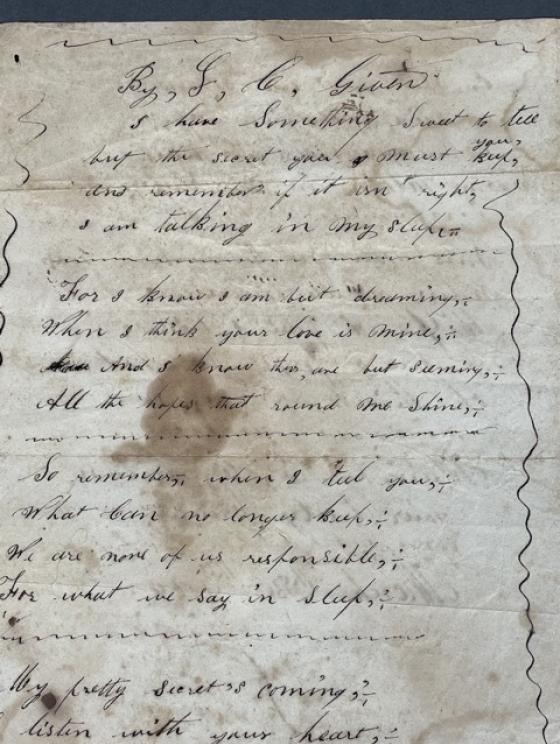 By, S, C, Given
I have Something Sweet to tell you,
but the secret you must keep,
and remember if it isn't right,
I am talking in my sleep
For I know I am but dreaming,
When I think your love is mine,
And I know they are but seeming,
All the hopes that round me Shine,
So remember, when I tell you,
What Can no longer keep,
We are none of us responsible,
For what we say in sleep,
My pretty secret's coming,
listen with your heart,